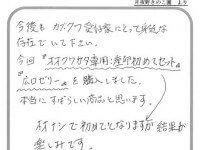 月夜野きのこ園 より
今後も カブクワ愛好家にとって身近な
存在でいて下さい。
今回『オオクワガタ専用:産卵初めてセット』
『広口ゼリー』を購入しました。
本当にすばらしい商品と思います。
材ナシで初めてとなりますが結果が
楽しみです。